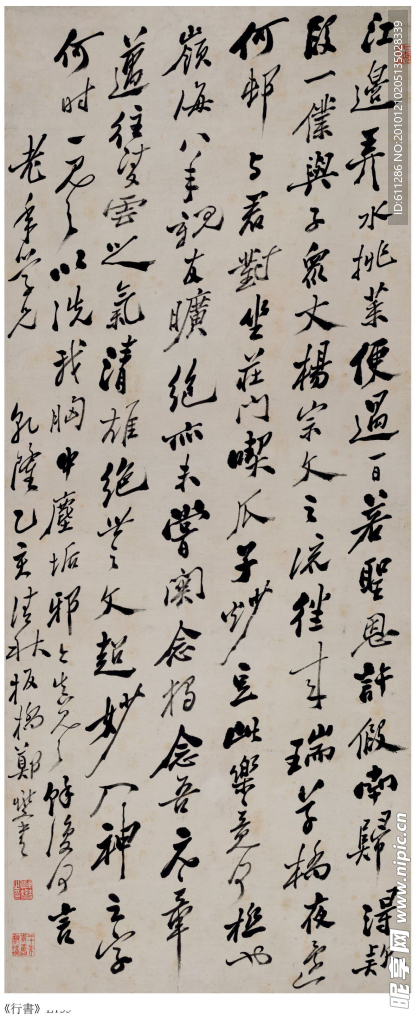 江邊弄水挑菜便過一日若聖恩許假南歸得款
段一僕與子眾丈楊宗文之流往來瑞草橋夜還
何邨与君對坐莊門喫瓜子炒豆此樂竟何極也
嶺海八年親友曠絕亦未嘗關念獨念吾元章
邁往凌雲之氣清雄絕世之文超妙入神之字
何時一見之以洗我胸中塵垢邪今真見之餘復何言
老年學兄
乾隆乙亥清秋板橋鄭燮書
《行書》
ID:611286 NO:20101210205135028339
昵享网 www.nipic.cn